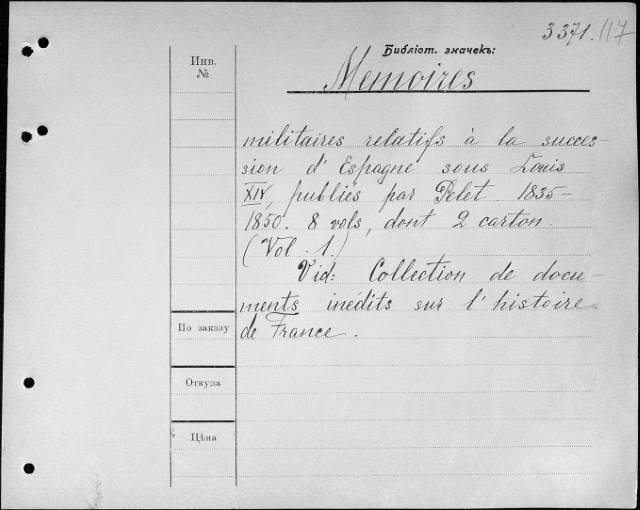 3371. 117
Библіот. значекъ:
Инв.
№
Memoires
militaires relatifs à la succes-
sion d' Espagne sous Louis
XIV, publiés par Pelet 1835-
1850. 8 vols, dont 2 carton.
(Vol. 1.)
Vid: Collection de docu-
ments inédits sur l' histoire
По заказу
de France.
Откуда
Цѣна